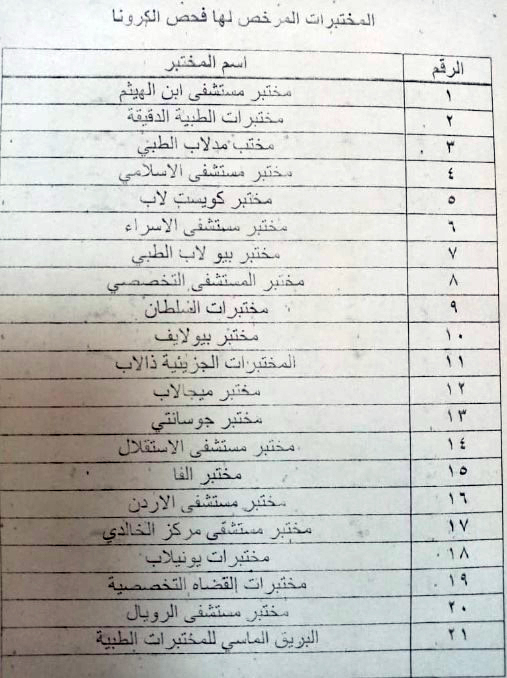 المختبرات المرخص لها فحص الكرونا
الرقم اسم المختبر
١ مختبر مستشفى ابن الهيثم
٢ مختبرات الطبية الدقيقة
٣ مختب مدلاب الطبي
٤ مختبر مستشفى الاسلامي
٥ مختبر كويست لاب
٦ مختبر مستشفى الاسراء
٧ مختبر بيو لاب الطبي
٨ مختبر المستشفى التخصصي
٩ مختبرات السلطان
١٠ مختبر بيولايف
١١ المختبرات الجزيئية ذالاب
١٢ مختبر ميجالاب
١٣ مختبر جوسانتي
١٤ مختبر مستشفى الاستقلال
١٥ مختبر الفا
١٦ مختبر مستشفى الاردن
١٧ مختبر مستشفى مركز الخالدي
١٨ مختبرات يونيلاب
١٩ مختبرات القضاه التخصصية
٢٠ مختبر مستشفى الرويال
٢١ البريق الماسي للمختبرات الطبية